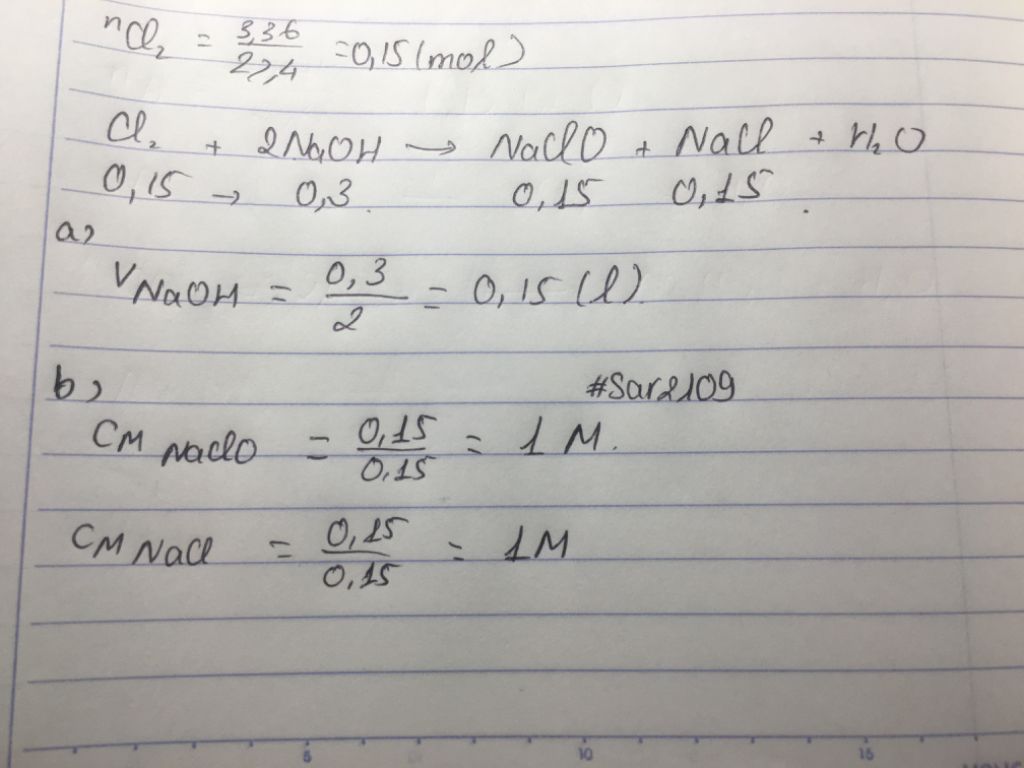 nCl₂ = 3,36/22,4 = 0,15 (mol)
Cl₂ + 2NaOH → NaClO + NaCl + H₂O
0,15 → 0,3 0,15 0,15
a)
VNaOH = 0,3/2 = 0,15 (l)
b)
#Sar2109
CM NaClO = 0,15/0,15 = 1 M.
CM NaCl = 0,15/0,15 = 1M
5 10 15